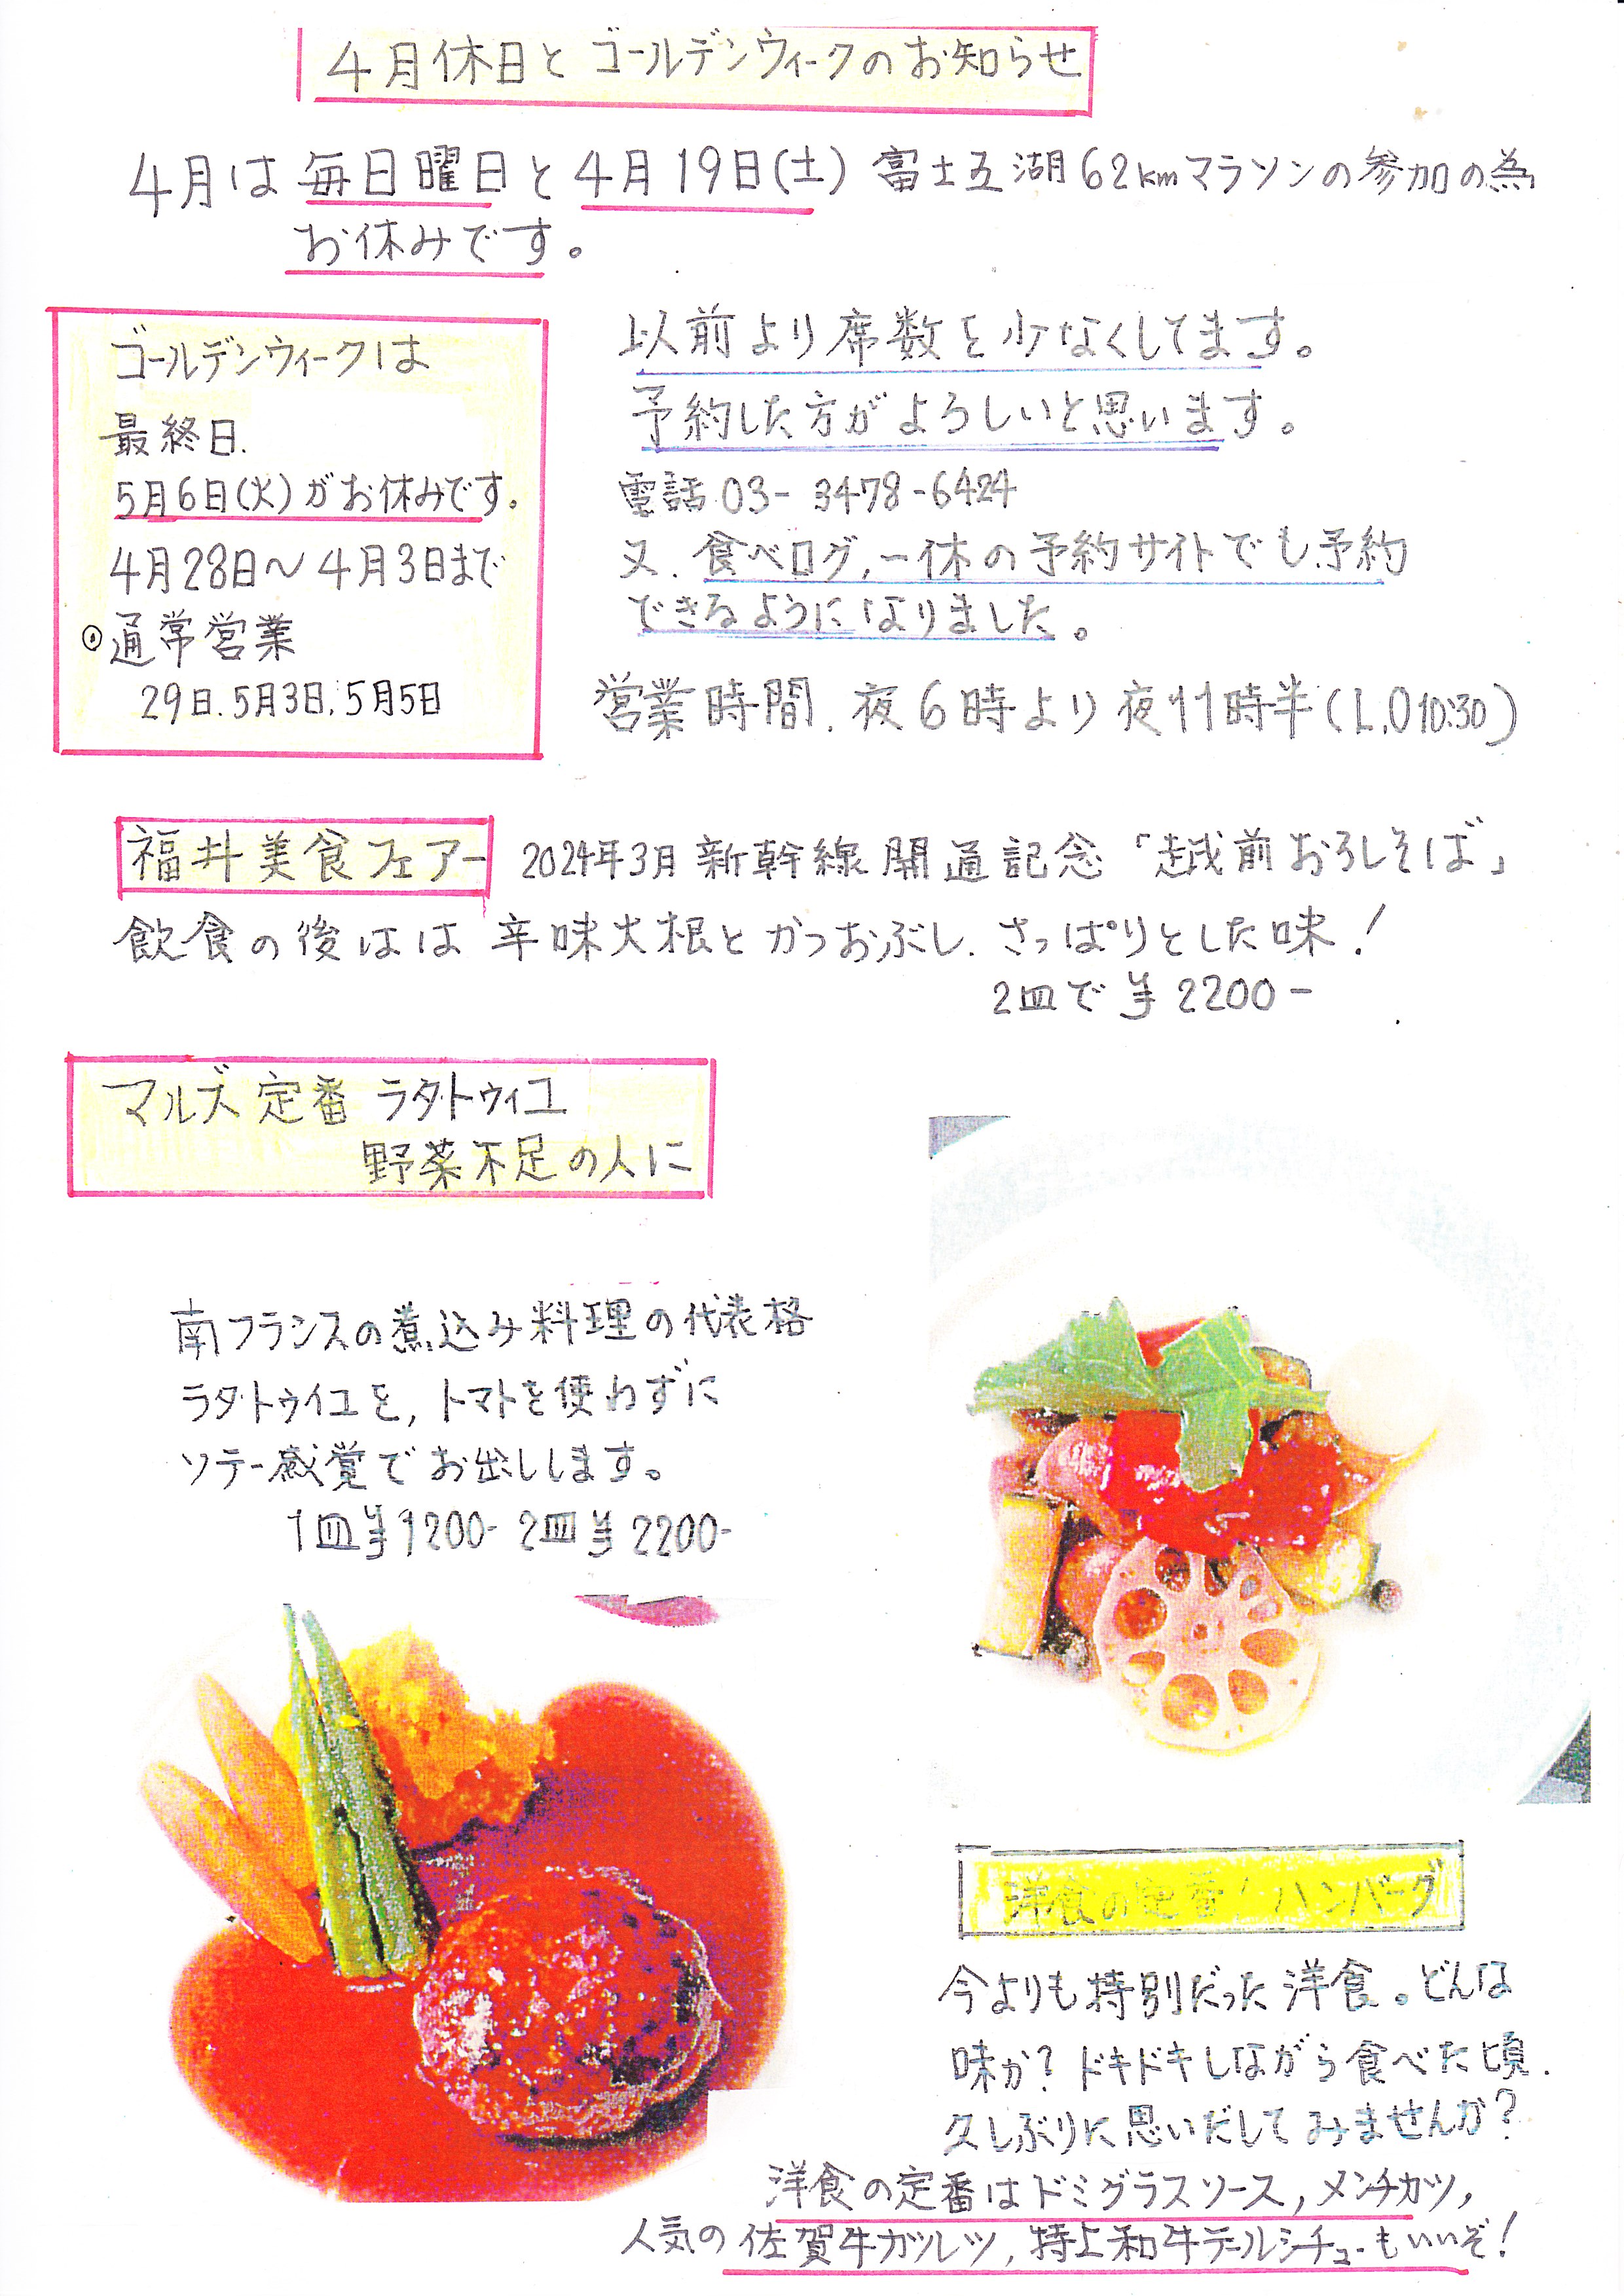 4月休日とゴールデンウィークのお知らせ
4月は毎日曜日と4月19日(土)富士五湖62kmマラソンの参加の為
お休みです。
ゴールデンウィークは
最終日.
5月6日(火)がお休みです。
4月28日〜4月3日まで
通常営業
29日.5月3日.5月5日
以前より席数を少なくしてます。
予約した方がよろしいと思います。
電話03-3478-6424
又.食べログ,一休の予約サイトでも予約
できるようになりました。
営業時間.夜6時より夜11時半(L.O10:30)
福井美食フェアー 2024年3月新幹線開通記念「越前おろしそば」
飲食の後はは辛味大根とかつおぶし.さっぱりとした味!
2皿で¥2200-
マルズ定番ラタトゥイユ
野菜不足の人に
南フランスの煮込み料理の代表格
ラタトゥイユを,トマトを使わずに
ソテー感覚でお出しします。
1皿¥1200- 2皿¥2200-
洋食の定番!ハンバーグ
今よりも特別だった洋食。どんな
味か?ドキドキしながら食べた頃.
久しぶりに思いだしてみませんか?
洋食の定番はドミグラスソース,メンチカツ,
人気の佐賀牛カツレツ,特上和牛テールシチューもいいぞ!